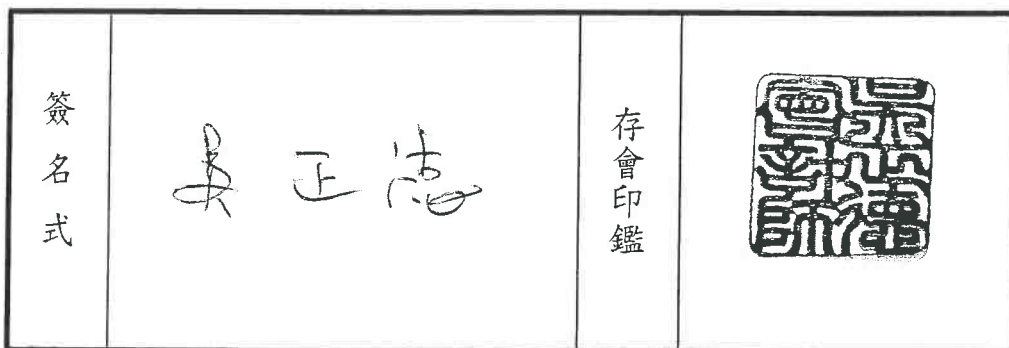 簽名式
吳正德
存會印鑑